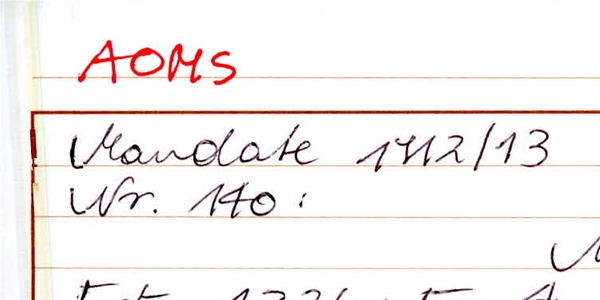 AOMS
Mandate 1712/13
Nr. 140: